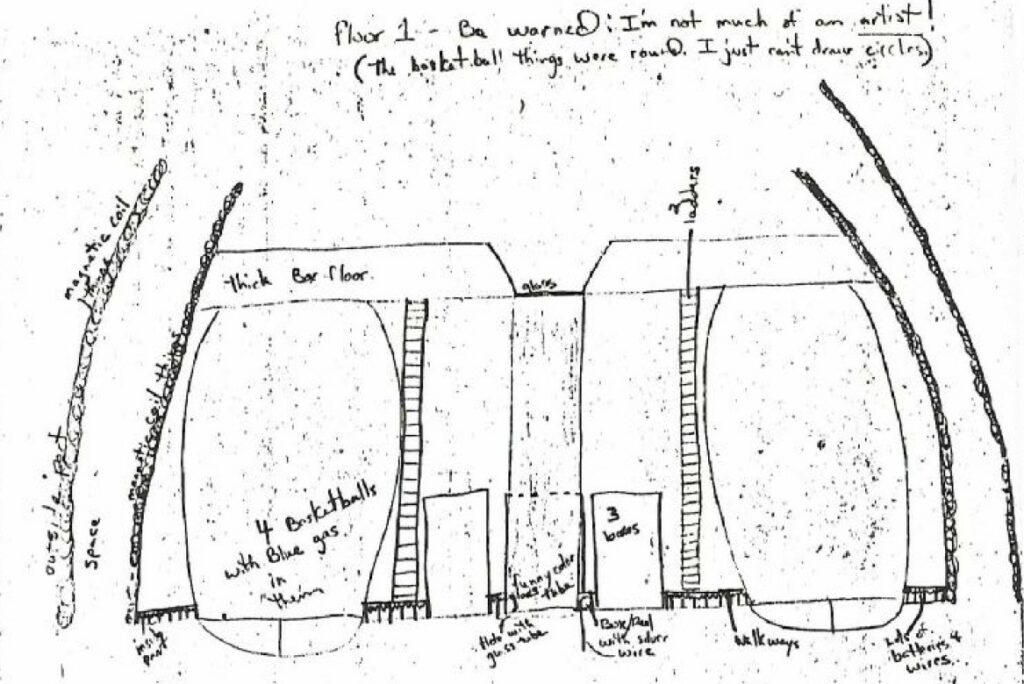 floor 1 - Be warned: I'm not much of an artist!
(The basketball things were round. I just can't draw circles.)
2 ladders
magnetic coil things
thick Box floor.
glass
magnetic coil things
outside part
space
4 Basketballs
with Blue gas
in
them
3
boxes
funny color
glass tube
inside
part
Hole with
glass tube
Box/Pool
with silver
wire
Walkways
Lots of
batteries &
wires